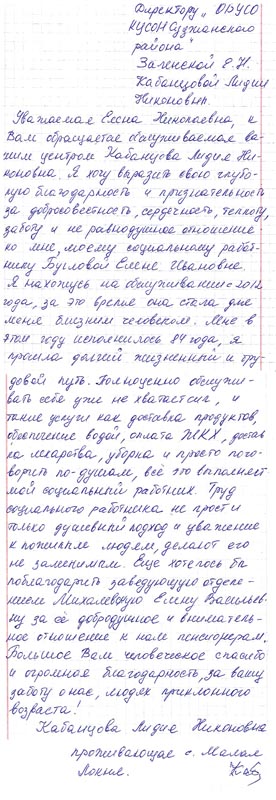 Директору „ОБУСО
КЦСОН Суджанского
района"
Загенской Е.Н.
Кабанцовой Лидии
Никоновны.
Уважаемая Елена Николаевна, к
Вам обращается обслуживаемая ва-
шим центром Кабанцова Лидия Ни-
коновна. Я хочу выразить свою глубо-
кую благодарность и признательность
за добросовестность, сердечность, теплоту,
заботу и не равнодушное отношение
ко мне, моему социальному работ-
нику Бусловой Елене Ивановне.
Я нахожусь на обслуживании с 2012
года, за это время она стала для
меня близким человеком. Мне в
этом году исполнилось 84 года, я
прошла долгий жизненный и тру-
довой путь. Полноценно обслужи-
вать себя уже не хватает сил, и
такие услуги как доставка продуктов,
обеспечение водой, оплата ЖКХ, достав
ка лекарства, уборка и просто пого-
ворить по-душам, всё это выполняет
мой социальный работник. Труд
социального работника не прост и
только душевный подход и уважение
к пожилым людям, делают его
не заменимым. Еще хотелось бы
поблагодарить заведующую отделе-
нием Михалевскую Елену Василье-
ну за её добродушное и вниматель-
ное отношение к нам пенсионерам.
Большое Вам человеческое спасибо
и огромная благодарность, за вашу
заботу о нас, людях приклонного
возраста!
Кабанцова Лидия Никоновна
проживающая с. Малая
Локня.